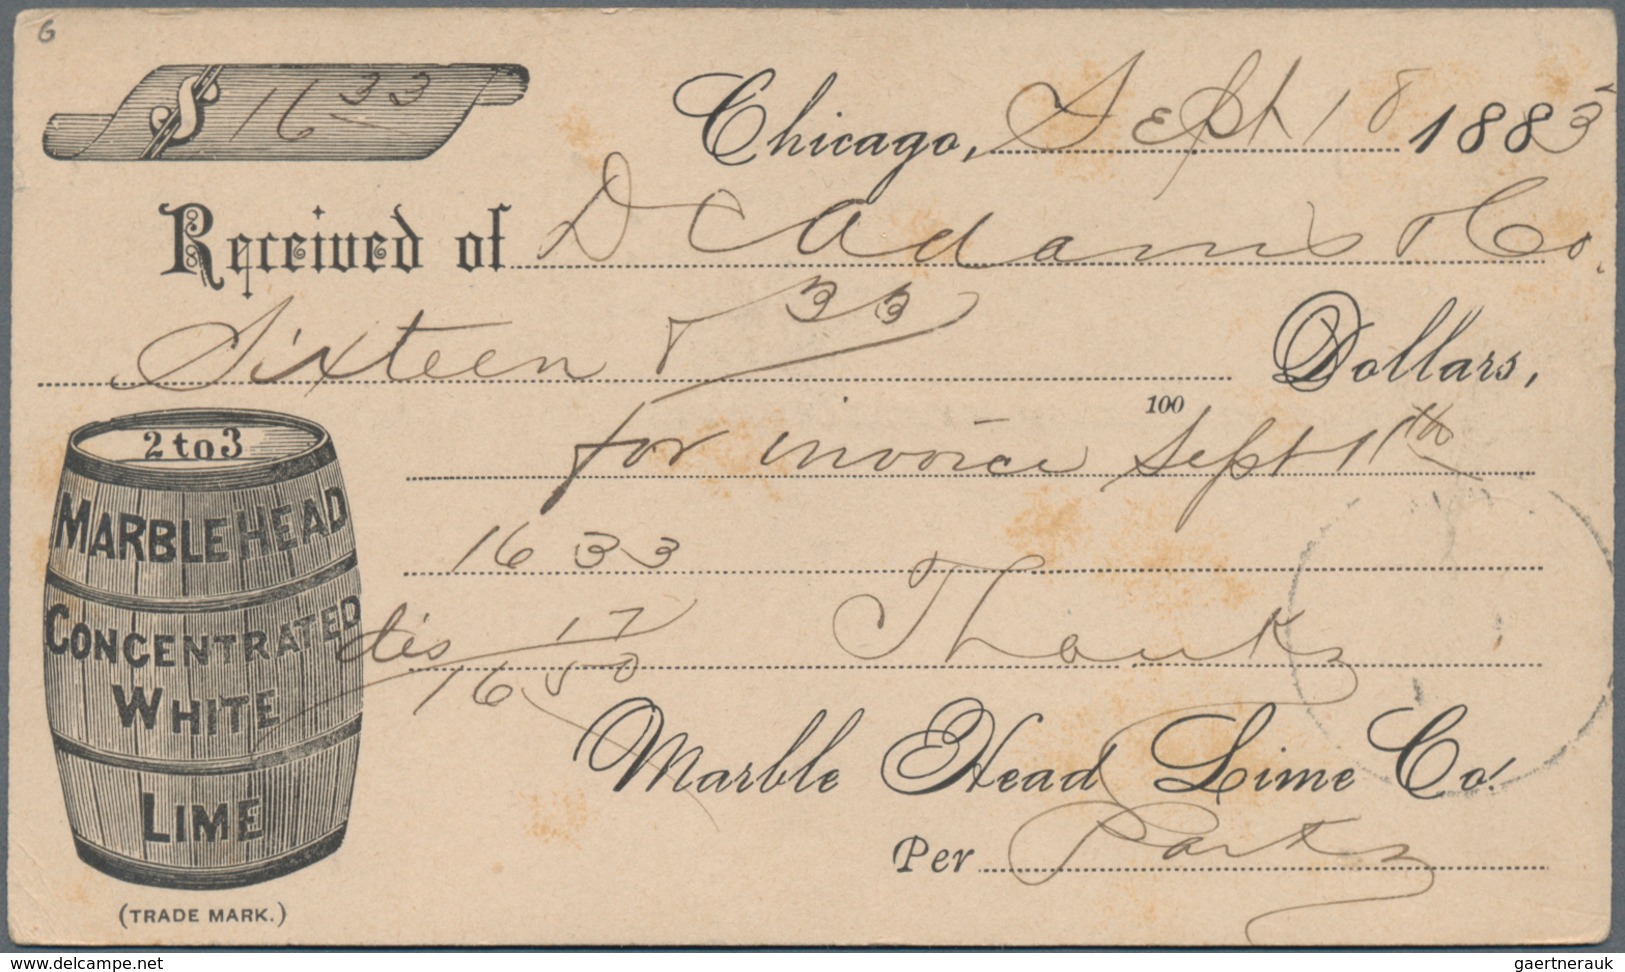 6
$ 16 33
Chicago, Sept 18 1883
Received of D C Adams & Co.
Sixteen & 33 Dollars,
100
for invoice Sept 11th
16 33
dis 17
16 50
Thanks
Marble Head Lime Co.
Per
2 to 3
MARBLEHEAD
CONCENTRATED
WHITE
LIME
(TRADE MARK.)
www.delcampe.net
gaertnerauk